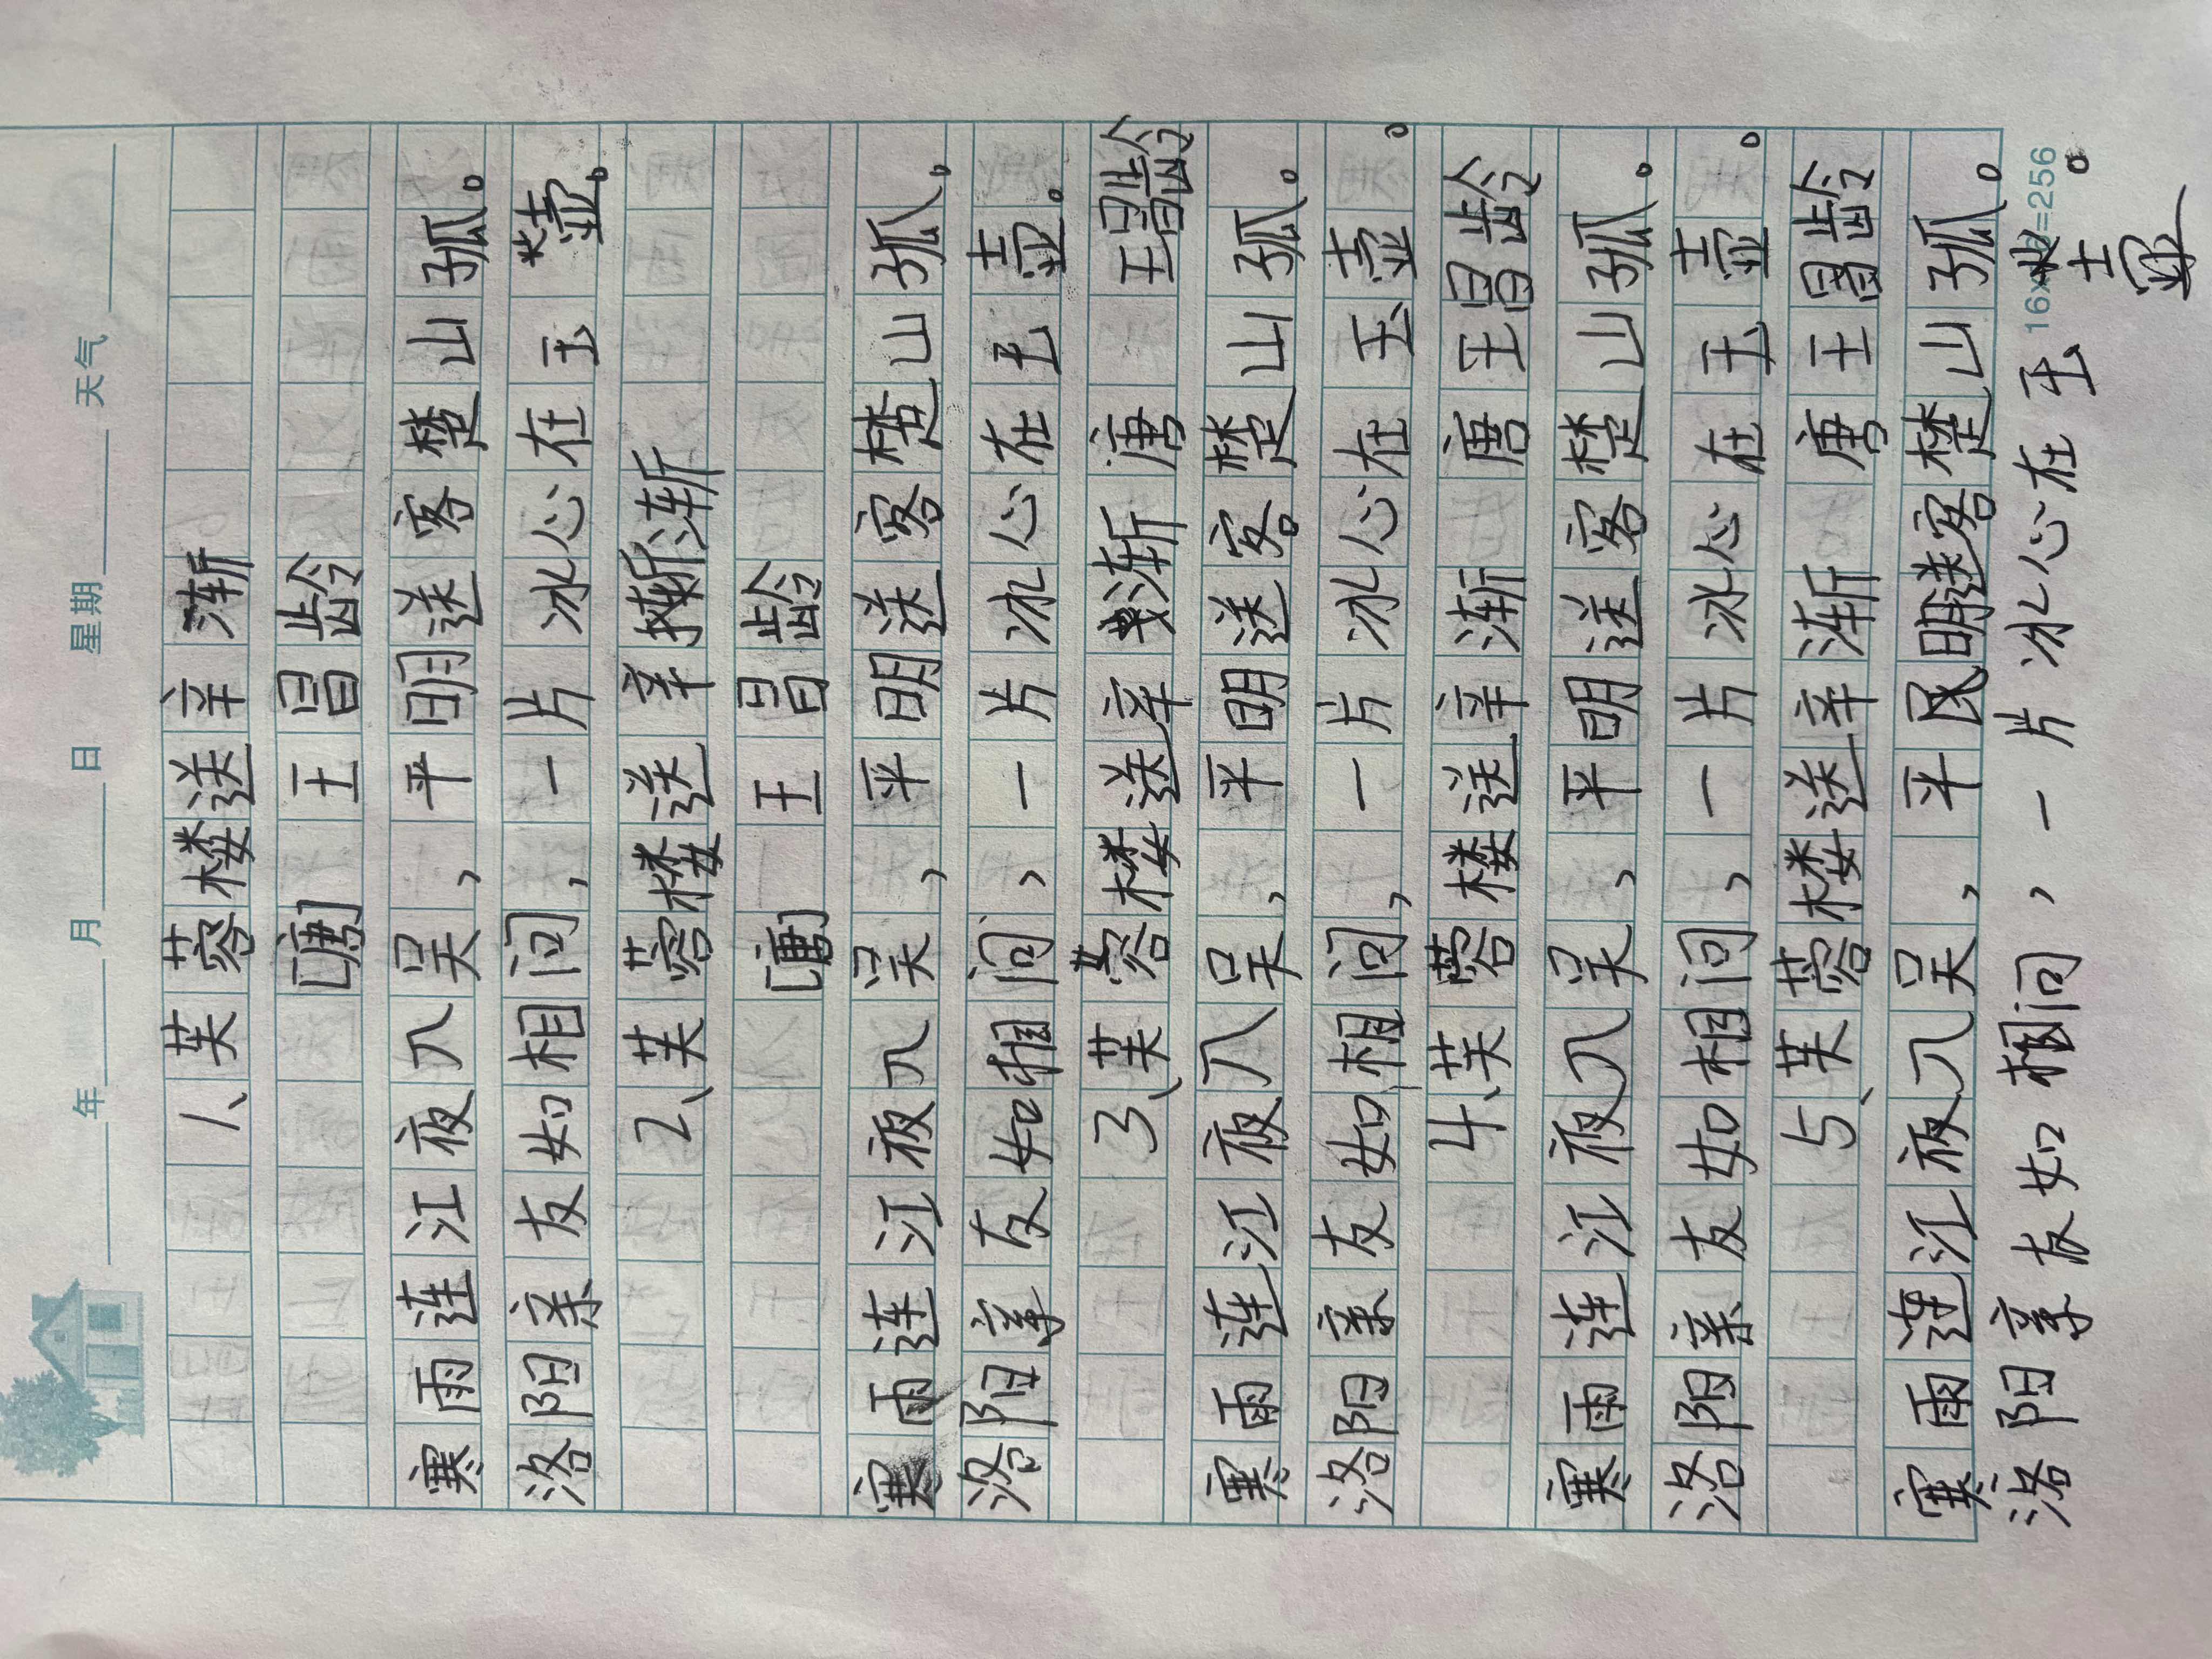 年 月 日 星期 天气
1、芙蓉楼送辛渐
[唐] 王昌龄
寒雨连江夜入吴，平明送客楚山孤。
洛阳亲友如相问，一片冰心在玉壶。
2、芙蓉楼送辛渐
[唐] 王昌龄
寒雨连江夜入吴，平明送客楚山孤。
洛阳亲友如相问，一片冰心在玉壶。
3、芙蓉楼送辛渐 唐 王昌龄
寒雨连江夜入吴，平明送客楚山孤。
洛阳亲友如相问，一片冰心在玉壶。
4、芙蓉楼送辛渐 唐 王昌龄
寒雨连江夜入吴，平明送客楚山孤。
洛阳亲友如相问，一片冰心在玉壶。
5、芙蓉楼送辛渐 唐 王昌龄
寒雨连江夜入吴，平民明送客楚山孤。
洛阳亲友如相问，一片冰心在玉壶。